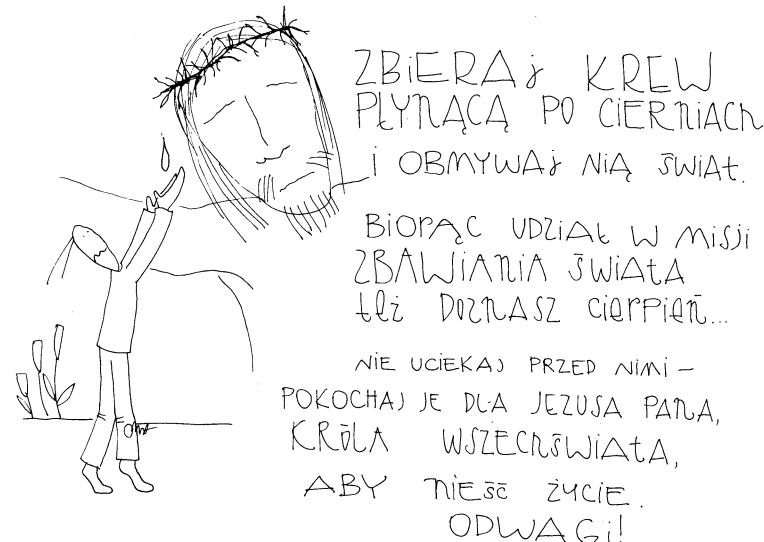 ZBIERAJ KREW
PŁYNĄCĄ PO CIERNIACH
I OBMYWAJ NIĄ ŚWIAT.
BIORĄC UDZIAŁ W MISJI
ZBAWIANIA ŚWIATA
też DOZNASZ cierpień...
NIE UCIEKAJ PRZED NIMI –
POKOCHAJ JE DLA JEZUSA PANA,
KRÓLA WSZECHŚWIATA,
ABY NIEŚĆ ŻYCIE.
ODWAGI!